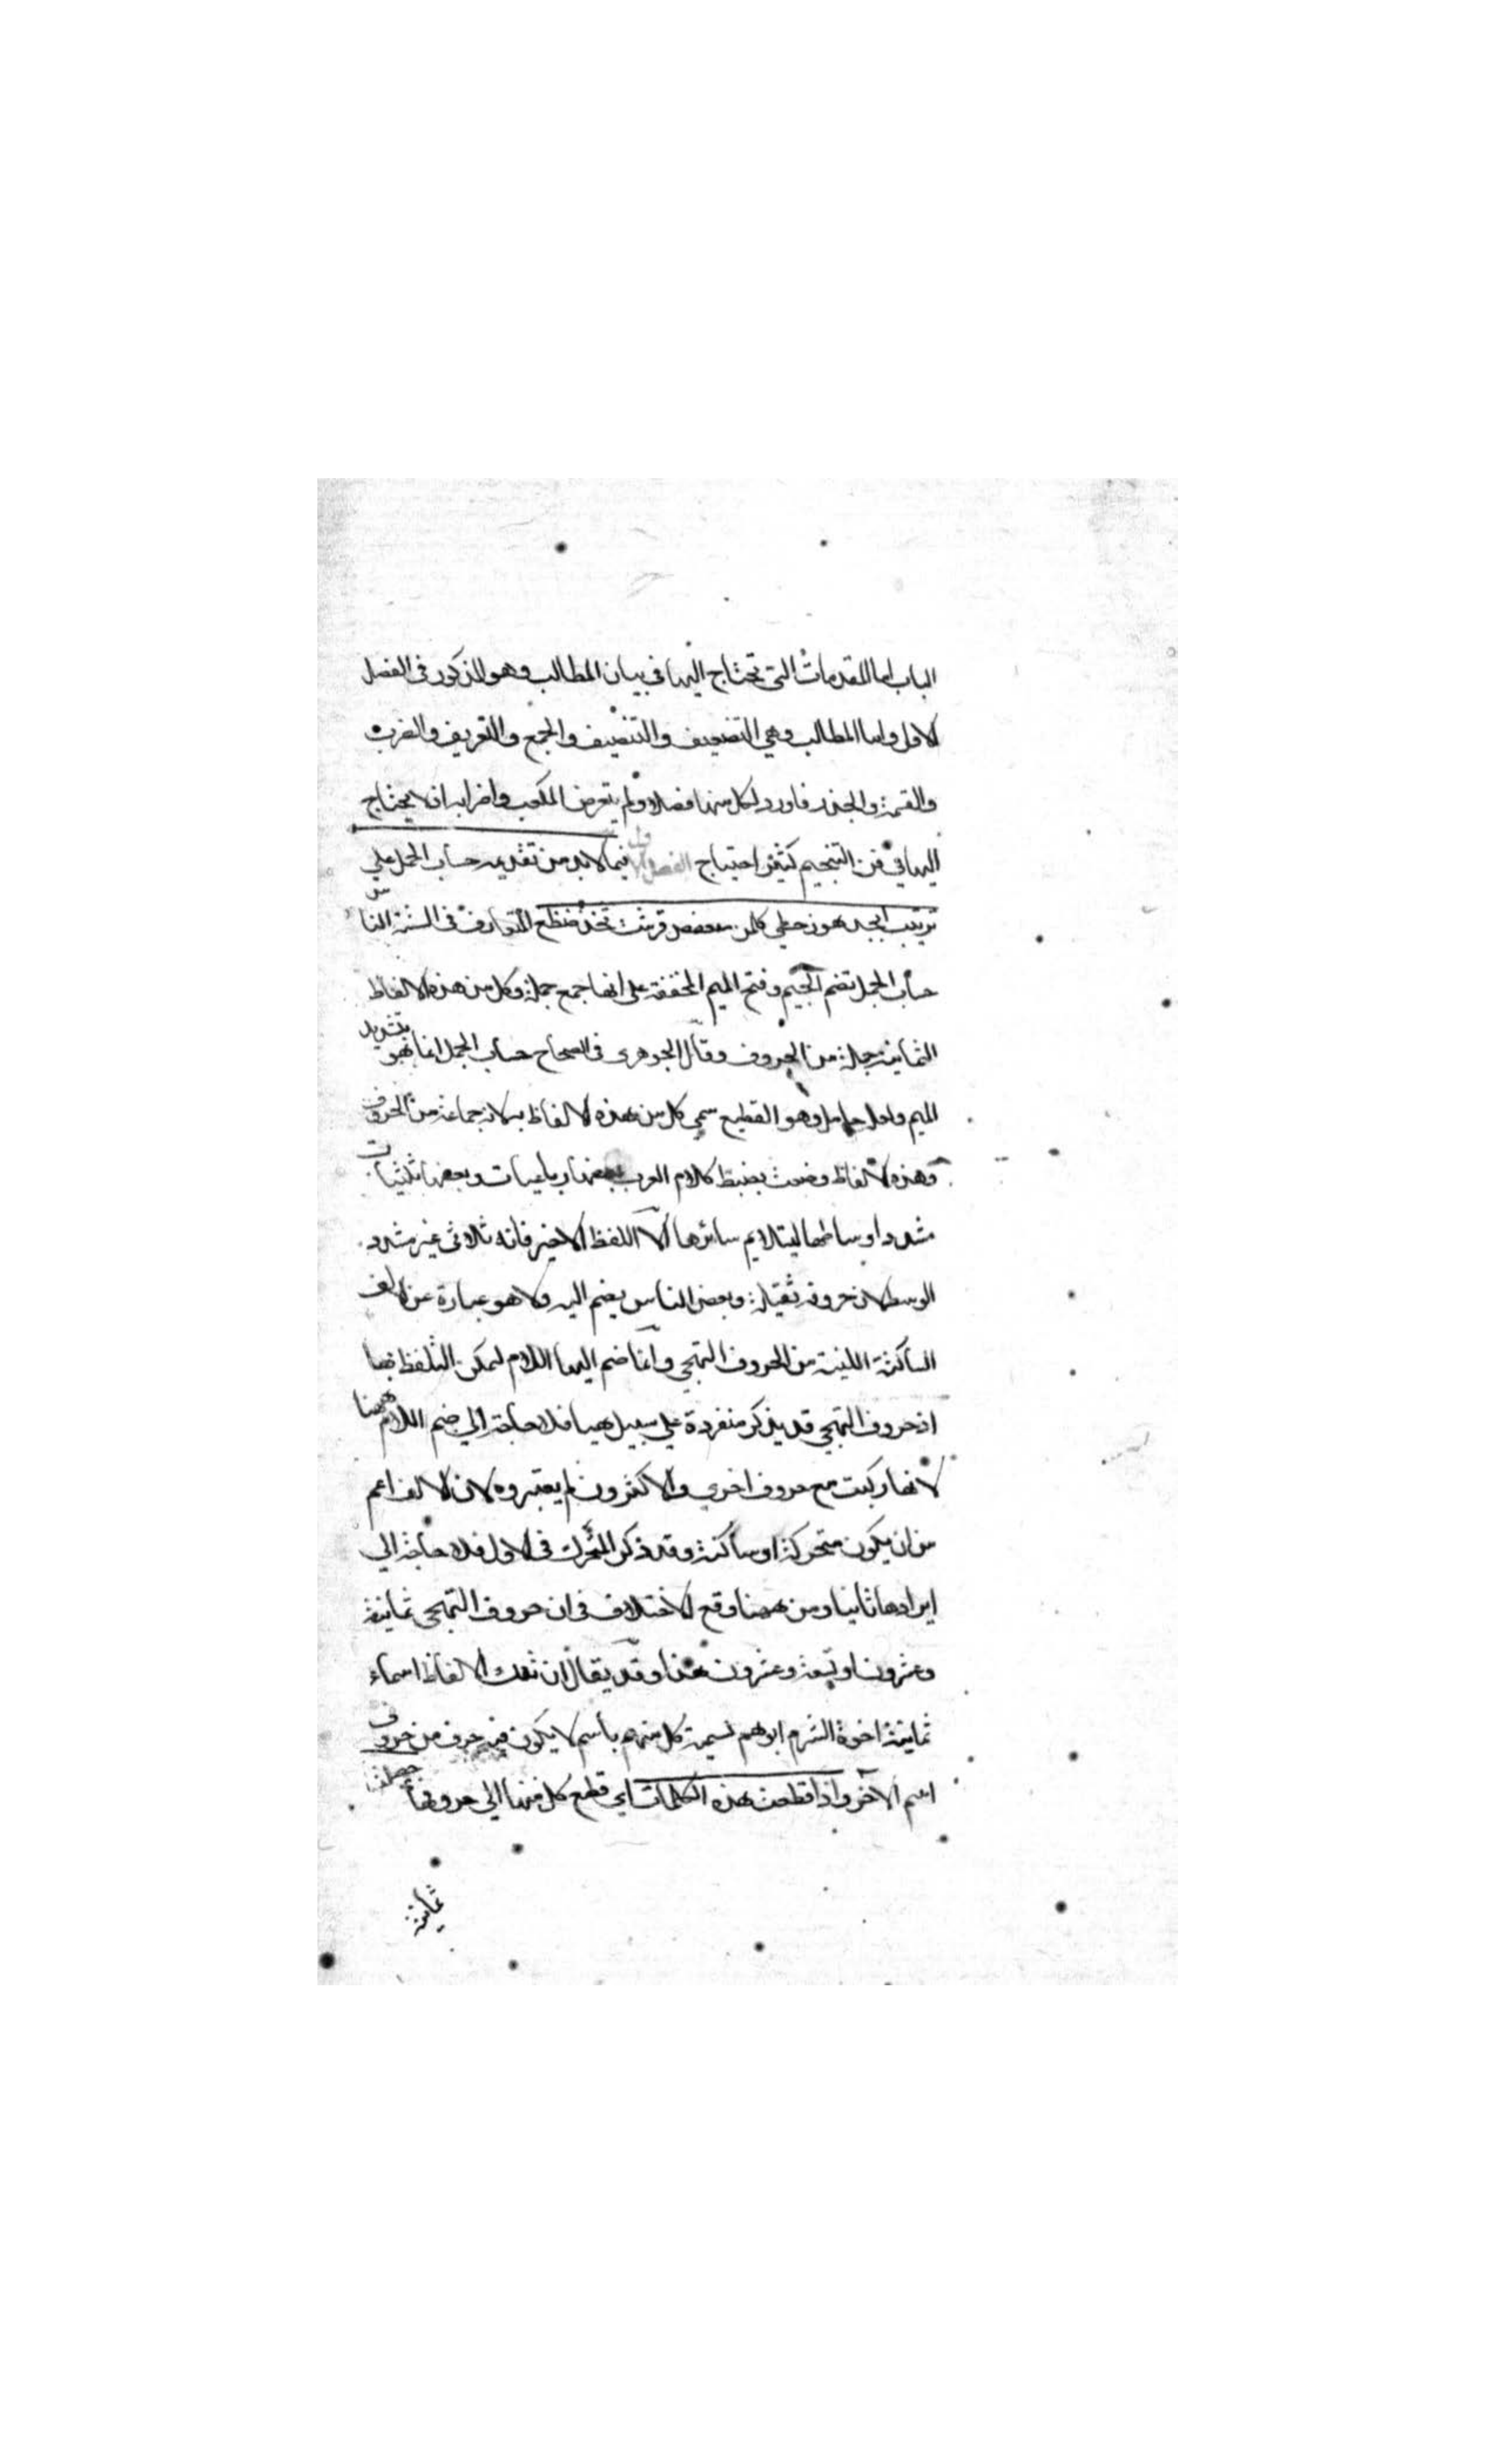 الباب اما المقدمات التى تحتاج اليها فى بيان المطالب وهو المذكور فى الفصل
الاول واما المطالب وهي التضعيف والتنصيف والجمع والتفريق والضرب
والقسمة والجذر فاورد لكل منها فصلا ولم يتعرض المكعب واضرابه اذ لا يحتاج
اليها فى فن التنجيم كثير احتياج الفصل الاول فيما لا بد من تقديمه حساب الجمل على
ترتيب ابجد هوز حطي كلمن سعفص قرشت ثخذ ضظغ المتعارف فى السنة الناس
حساب الجمل تضم الجيم وفتح الميم المخففة على انها جمع جملة وكل من هذه الالفاظ
الثمانية جملة من الحروف وقال الجوهرى فى الصحاح حساب الجمل انما هو بتشديد
الميم ولعل وهو القطيع سمى كل من هذه الالفاظ به لانه جماعة من الحروف
وهذه الالفاظ وضعت بضبط كلام العرب بعضها رباعيات وبعضها ثلثيات
مشدد اوساطها ليتلايم سائرها الا اللفظ الاخير فانه ثلاثى غير مشدد
الوسط لان حروفه ثقيلة وبعض الناس يضم اليه ولا هو عبارة عن الالف
الساكنة اللينة من الحروف التهجي وانما ضم اليها اللام ليمكن التلفظ بها
اذ حروف التهجي قد يذكر منفردة علي سبيل فلا حاجة الي ضم اللام ههنا
لانها ركبت مع حروف اخري والاكثرون لم يعتبروه لان الالف اعم
من ان يكون متحركة او ساكنة وقد ذكر المتحرك فى الاول فلا حاجة الي
ايرادها ثانيا ومن ههنا وقع الاختلاف فى ان حروف التهجى ثمانية
وعشرون او تسعة وعشرون هذا وقد يقال ان تلك الالفاظ اسماء
ثمانية اخوة التزم ابوهم تسمية كل منهم باسم لا يكون فيه حرف من حروف
اسم الآخر واذا قطعت هذه الكلمات اي قطع كل منها الي حروفها حصلت
ثمانية